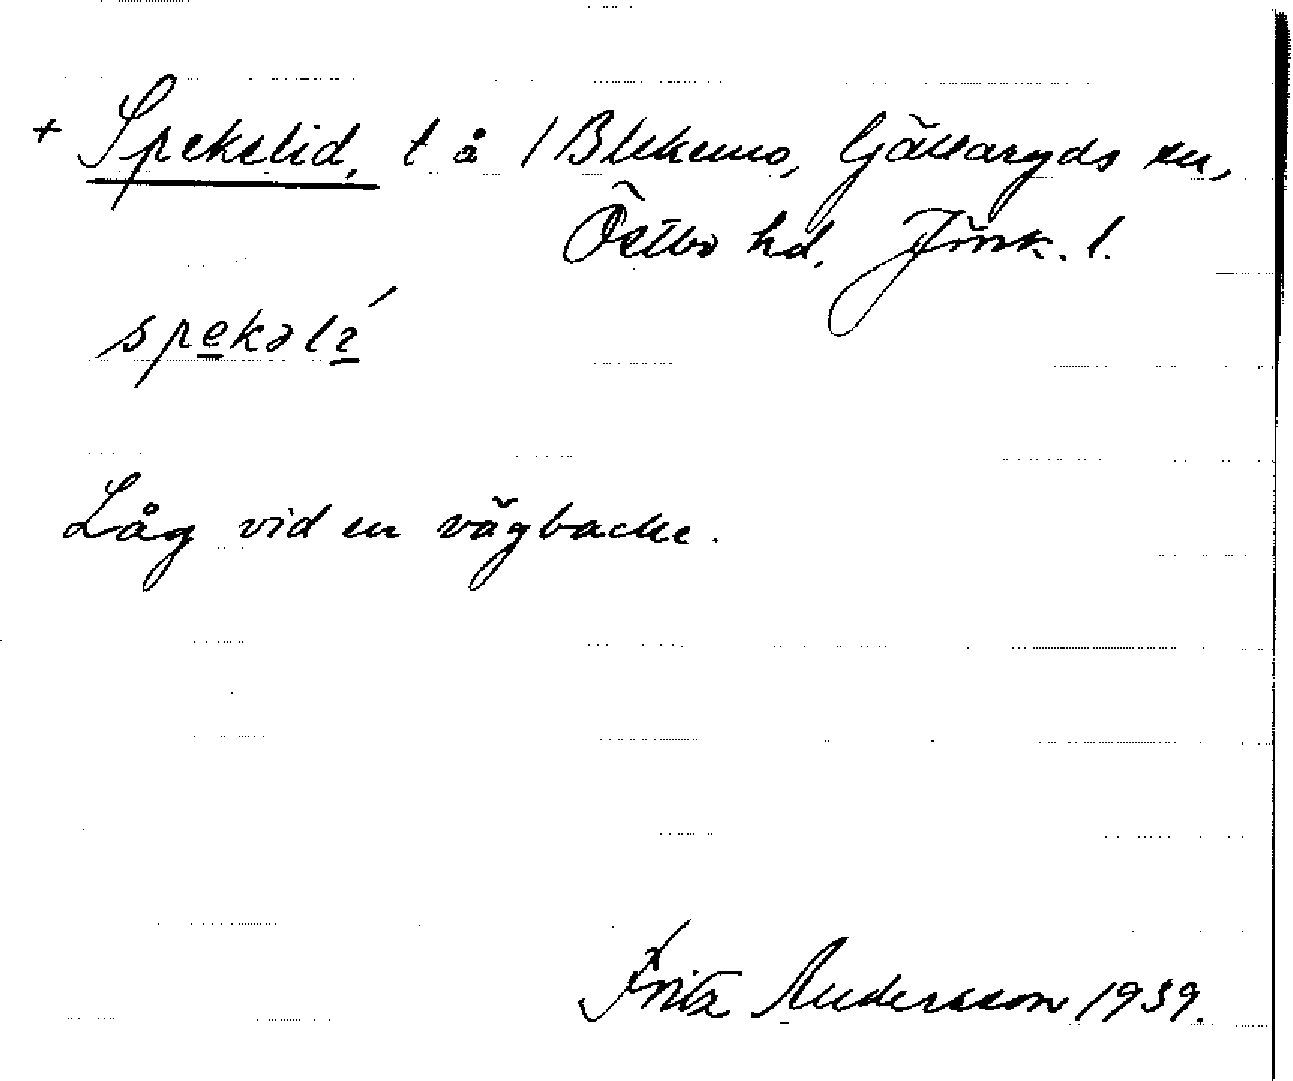 + Spekelid, t å / Blekemo, Gällaryds sn,
Östbo hd. Jönk. l.
spekəlí
Låg vid en vägbacke.
Fritz Andersson 1939.